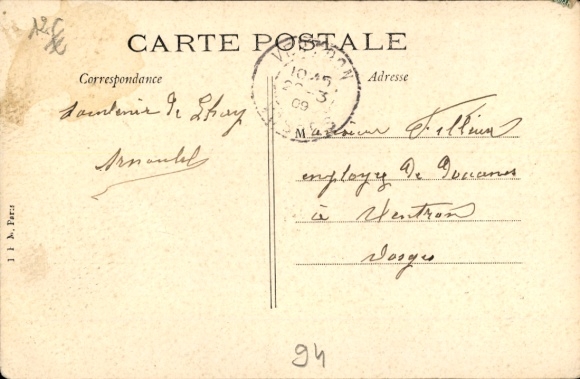 12 F
CARTE POSTALE
Correspondance
Adresse
VENTRON
10 45
20 -3
09
Souvenir de Lhay
Arnould
Monsieur
employez De Douanes
à Ventron
Vosges
Paris
94